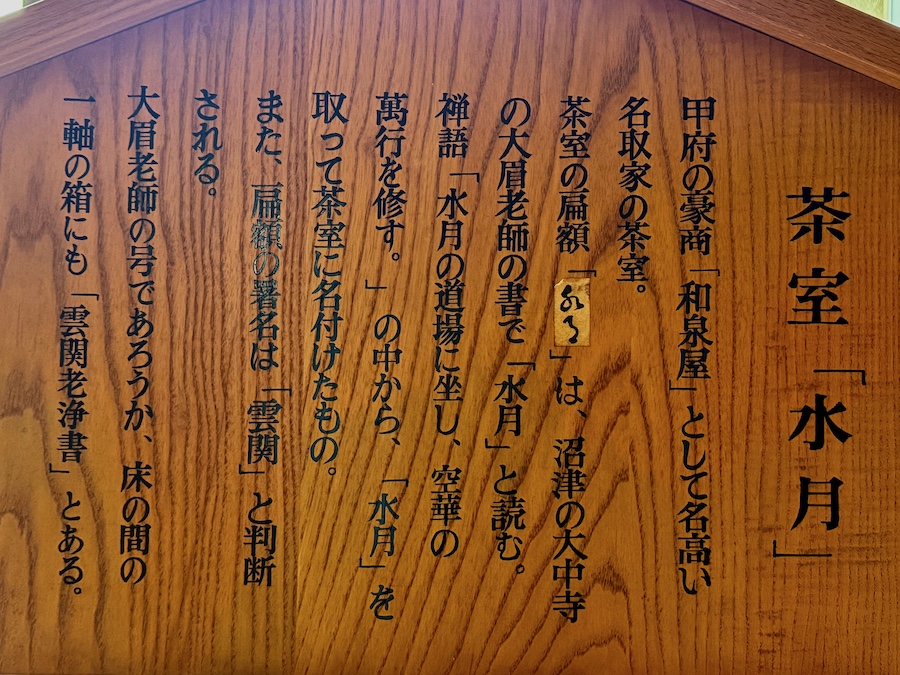 茶室「水月」
甲府の豪商「和泉屋」として名高い
名取家の茶室。
茶室の扁額「水月」は、沼津の大中寺
の大眉老師の書で「水月」と読む。
禅語「水月の道場に坐し、空華の
萬行を修す。」の中から、「水月」を
取って茶室に名付けたもの。
また、扁額の署名は「雲関」と判断
される。
大眉老師の号であろうか、床の間の
一軸の箱にも「雲関老浄書」とある。